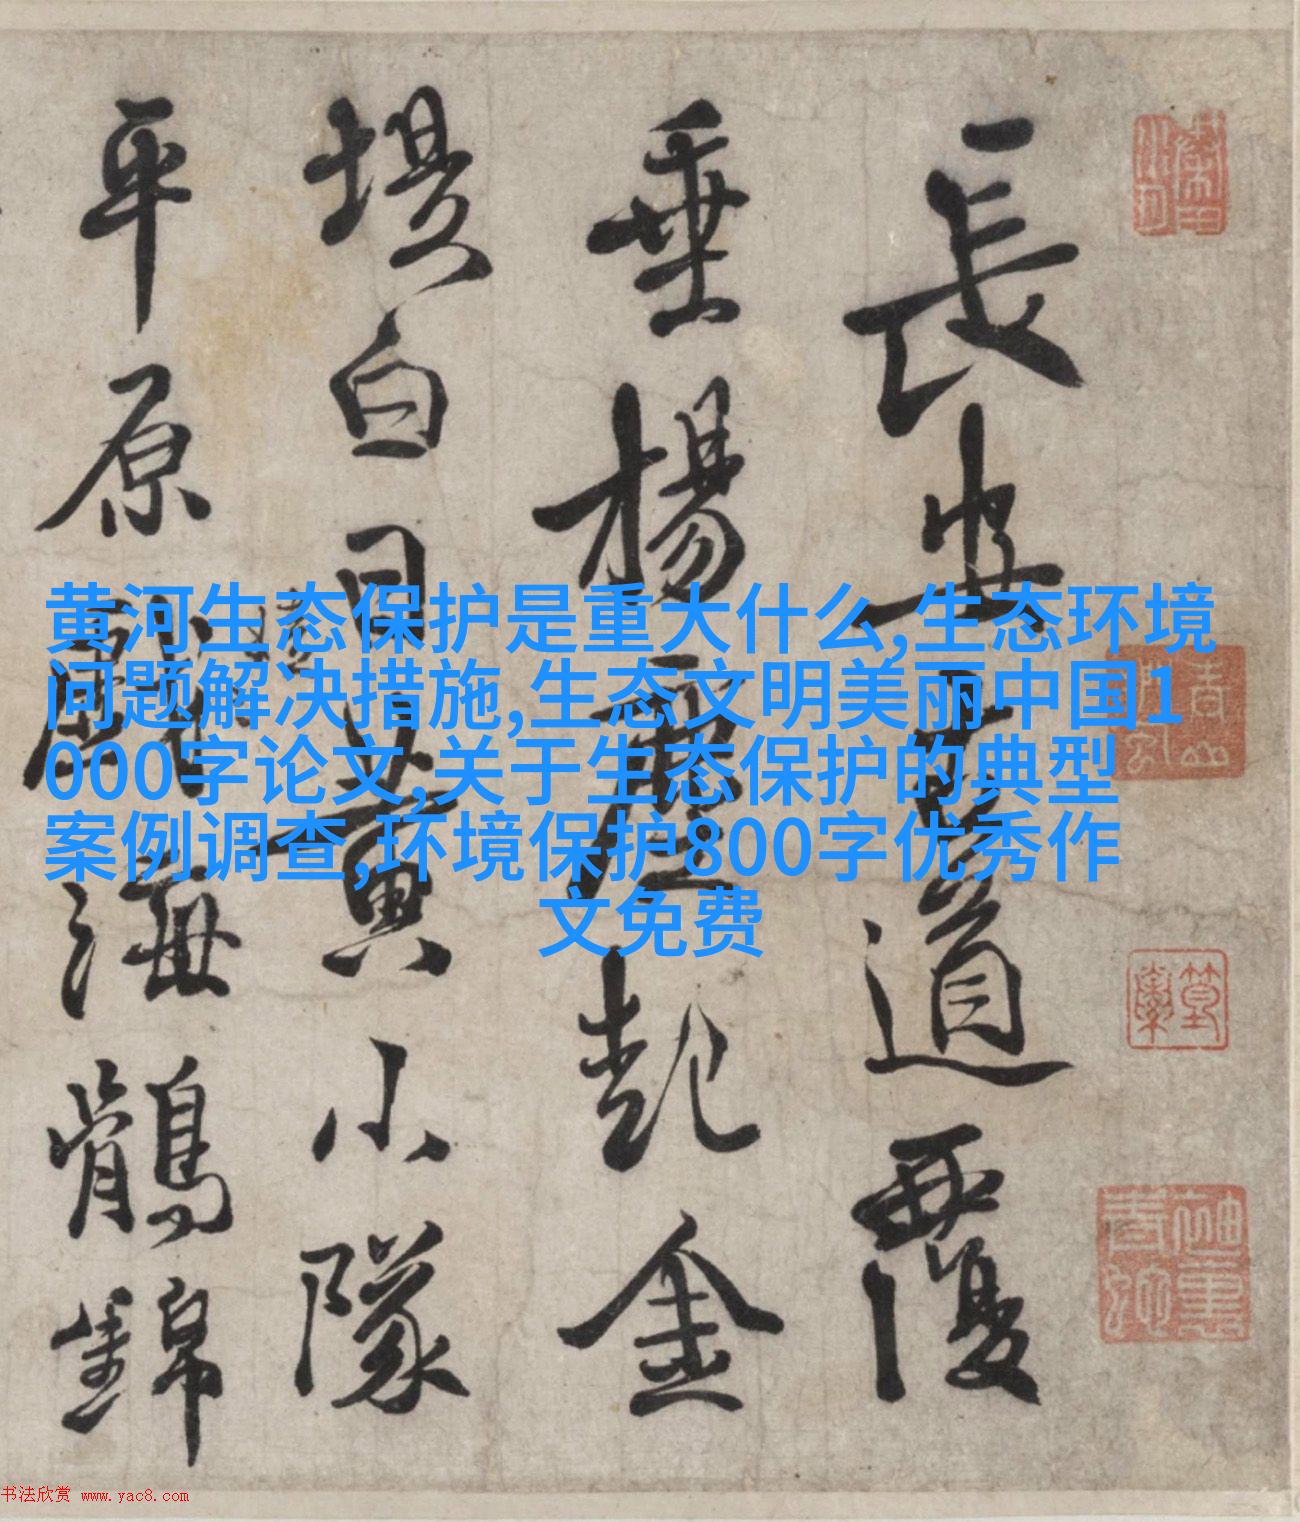 長安大道覆
垂楊塵起金
堤白日黄小隊
平原戲海鶻錦
黄河生态保护是重大什么,生态环境
问题解决措施,生态文明美丽中国1
000字论文,关于生态保护的典型
案例调查,环境保护800字优秀作
文免费
书法欣赏 www.yac8.com